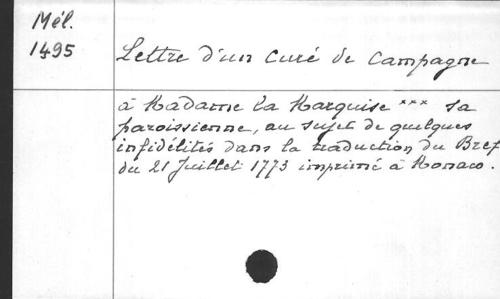 Mél.
1495
Lettre d'un curé de Campagne
à Madame la Marquise *** sa
paroissienne, au sujet de quelques
infidélités dans la traduction du Bref
du 21 Juillet 1773 imprimé à Monaco.